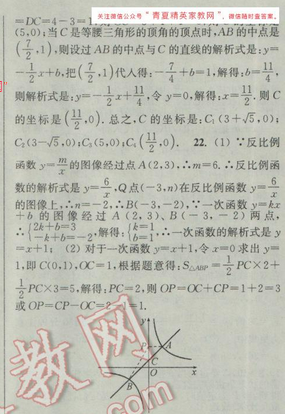 关注微信公众号"青夏精英家教网",微信版答案。
=DC=4-3=1
(5,0);当C是等腰三角形的顶角的顶点时,AB的中点是
(7/2,1),则设过AB的中点与C的直线的解析式是:y=
-1/2x+b,把(7/2,1)代入得:-7/4+b=1,解得:b=11/4,
则解析式是:y=-1/2x+11/4,令y=0,解得:x=11/2,则C
的坐标是(11/2,0).总之,C的坐标是:C₁(3+√5,0);
C₂(3-√5,0);C₃(5,0);C₄(11/2,0). 22.(1)∵反比例
函数y=m/x的图像经过点A(2,3),∴m=6.∴反比例函
数的解析式是y=6/x,Q点(-3,n)在反比例函数y=6/x
的图像上,∴n=-2,∴B(-3,-2),∵一次函数y=kx
+b的图像经过A(2,3)、B(-3,-2)两点,
∴{2k+b=3 -k+b=-2,解得:{k=1 b=1,∴一次函数的解析式是y
=x+1; (2)对于一次函数y=x+1,令x=0求出y=
1,即C(0,1),OC=1,根据题意得:S△ABP=1/2PC×2+
1/2PC×3=5,解得:PC=2,则OP=OC+CP=1+2=3
或OP=CP-OC=2-1=1.
y
P
A
C
O
x
B
教网